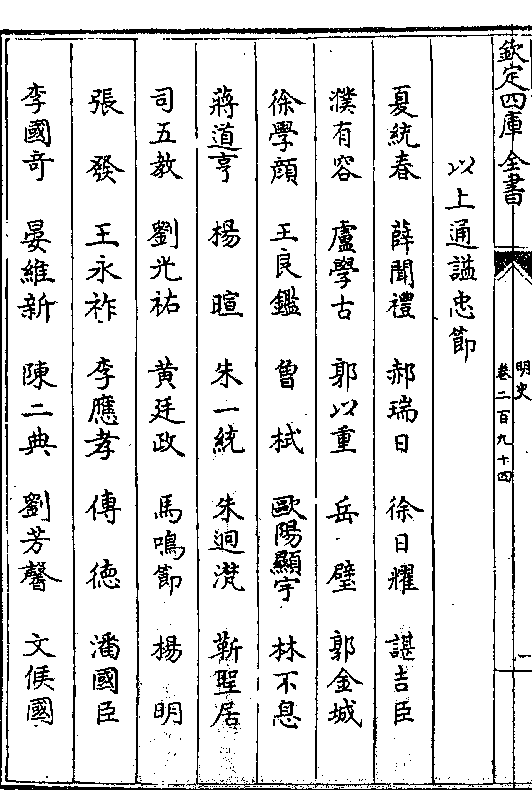 欽定四庫全書
明史
卷二百九十四
一
以上通諡忠節
夏統春 薛聞禮 郝瑞日 徐日耀 諶吉臣
濮有容 盧學古 郭以重 岳璧 郭金城
徐學顔 王良鑑 曾栻 歐陽顯宇 林不息
蔣道亨 楊暄 朱一統 朱迥滼 靳聖居
司五教 劉光祐 黄廷政 馬鳴節 楊明
張發 王永祚 李應孝 傅德 潘國臣
李國奇 晏維新 陳二典 劉芳馨 文侯國